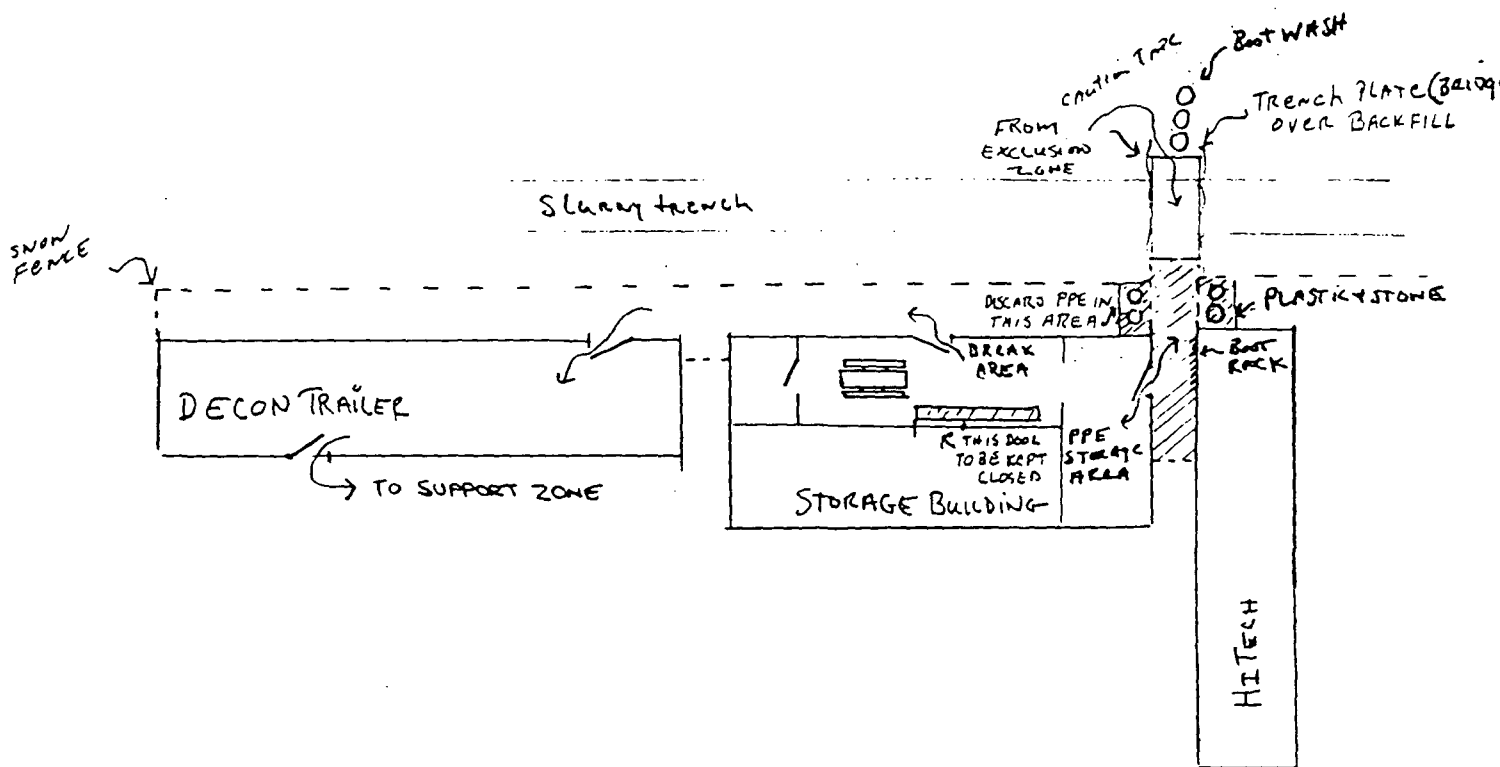 Boot WASH
CAUTION TAPE
TRENCH PLATE (BRIDGE
OVER BACKFILL
FROM
EXCLUSION
ZONE
Slurry trench
SNOW
FENCE
DISCARD PPE IN
THIS AREA
PLASTIC & STONE
BREAK
AREA
BOOT
RACK
DECON TRAILER
THIS DOOR
TO BE KEPT
CLOSED
PPE
STORAGE
AREA
TO SUPPORT ZONE
STORAGE BUILDING
HITECH